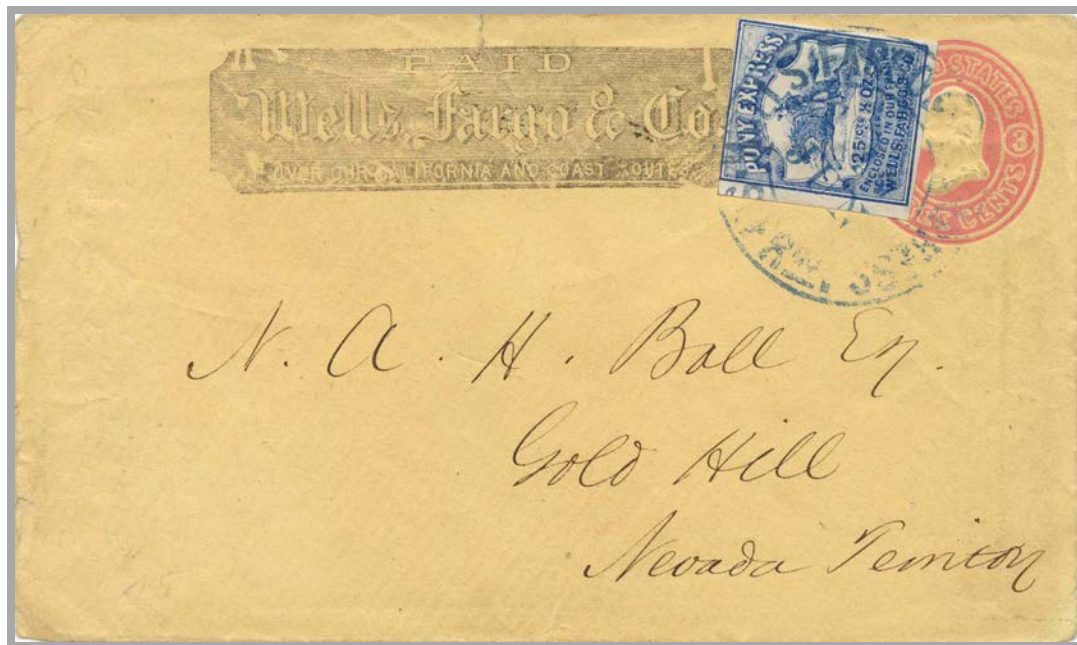 PAID
Wells, Fargo & Co
OVER OUR CALIFORNIA AND COAST ROUTES
PONY EXPRESS
25 cts ½ OZ.
ENCLOSED IN OUR FRANKS
WELLS, FARGO & Co
STATES
3
CENTS
N. A. H. Ball Esq.
Gold Hill
Nevada Territory